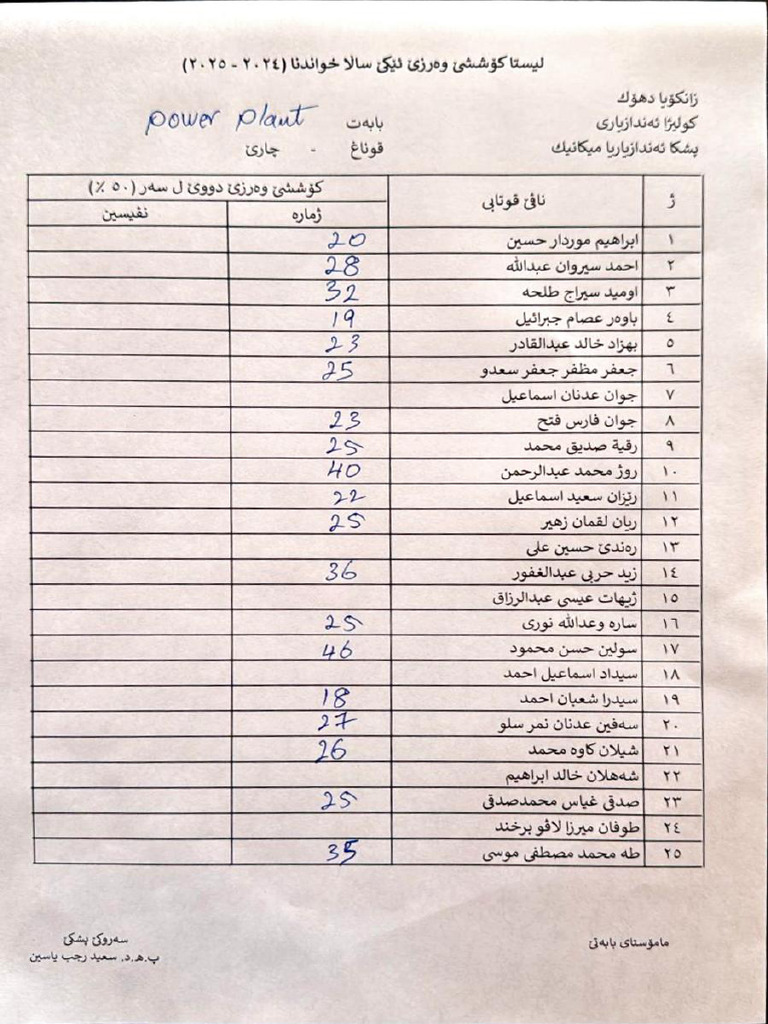 لیستا کۆششێ وەرزێ ئێکێ سالا خواندنا (٢٠٢٤ - ٢٠٢٥)
زانکۆیا دهۆك
کولیژا ئەندازیاری بابەت power plant
پشکا ئەندازیاریا میکانیك قوناغ - چارێ
ژ ناڤێ قوتابی کۆششێ وەرزێ دووێ ل سەر (٥٠ ٪)
ژمارە نڤیسین
١ ابراهیم موردار حسین 20
٢ احمد سیروان عبدالله 28
٣ اومید سیراج طلحه 32
٤ باوەر عصام جبرائیل 19
٥ بهزاد خالد عبدالقادر 23
٦ جعفر مظفر جعفر سعدو 25
٧ جوان عدنان اسماعیل
٨ جوان فارس فتح 23
٩ رقیة صدیق محمد 25
١٠ روژ محمد عبدالرحمن 40
١١ رێزان سعید اسماعیل 22
١٢ ریان لقمان زهیر 25
١٣ رەندێ حسین علی
١٤ زید حربی عبدالغفور 36
١٥ ژیهات عیسی عبدالرزاق
١٦ سارە وعدالله نوری 25
١٧ سولین حسن محمود 46
١٨ سیداد اسماعیل احمد
١٩ سیدرا شعبان احمد 18
٢٠ سەفین عدنان نمر سلو 27
٢١ شیلان کاوە محمد 26
٢٢ شەهلان خالد ابراهیم
٢٣ صدقی غیاس محمدصدقی 25
٢٤ طوفان میرزا لاڤو برخند
٢٥ طه محمد مصطفی موسی 35
مامۆستای بابەتێ سەروکێ پشکێ
پ.هـ.د. سعید رجب یاسین